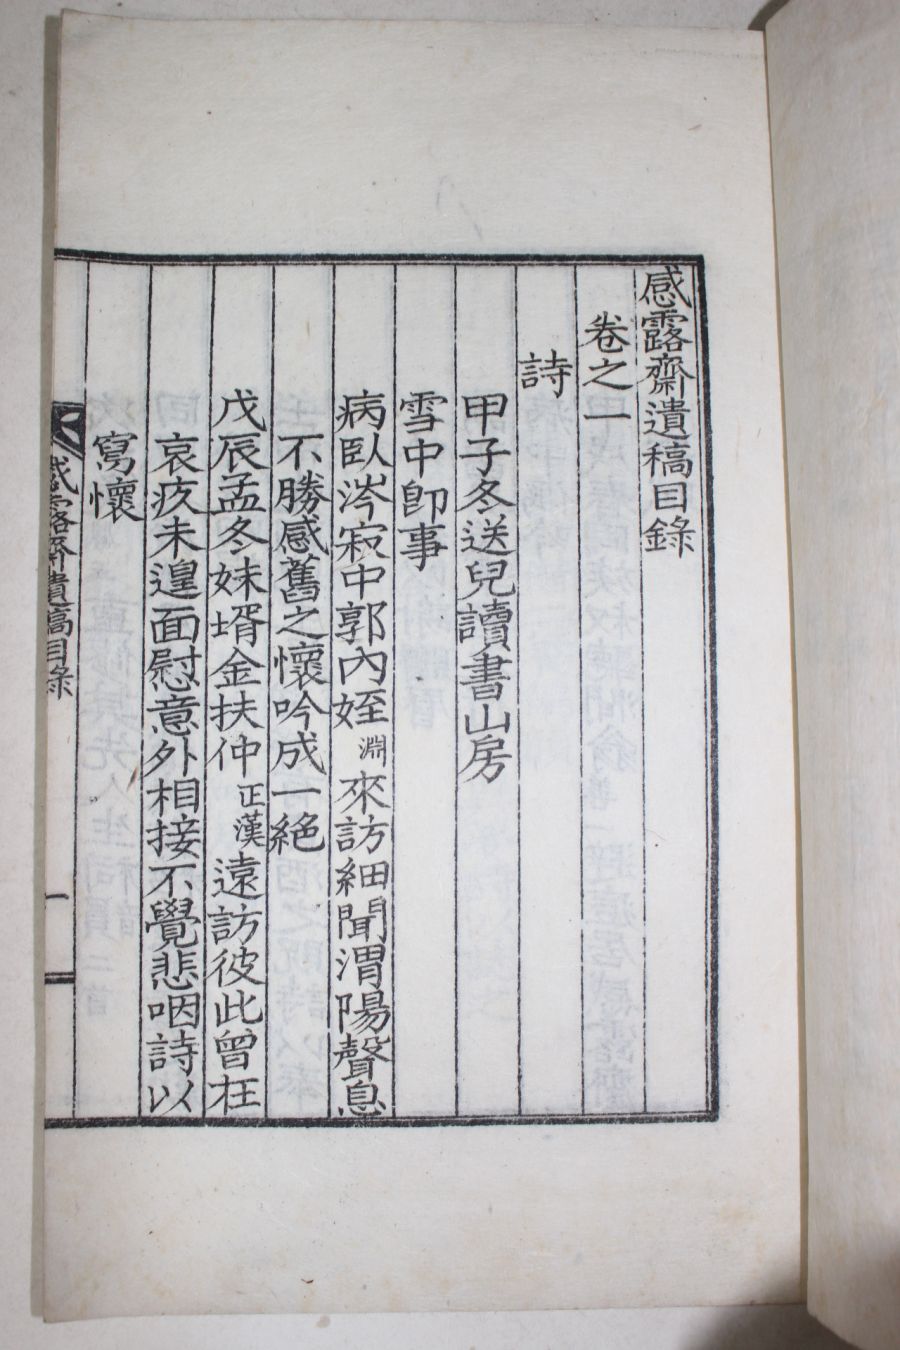 感露齋遺稿目錄
卷之一
詩
甲子冬送兒讀書山房
雪中卽事
病臥涔寂中郭內姪淵來訪細聞渭陽聲息
不勝感舊之懷吟成一絕
戊辰孟冬妹壻金扶仲正漢遠訪彼此曾在
哀疚未遑面慰意外相接不覺悲咽詩以
寫懷
感露齋遺稿目錄
一